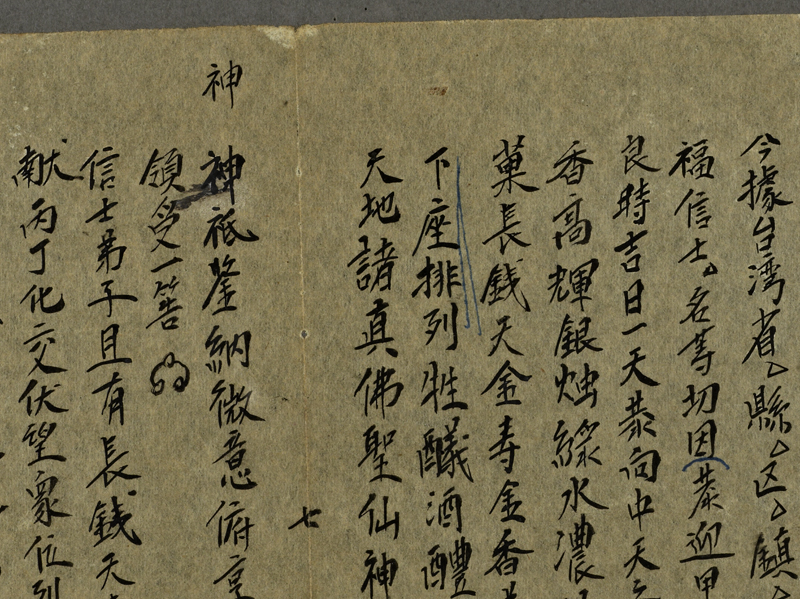 今據台湾省厶縣厶区厶鎮厶
福信士厶名等切因恭迎甲
良時吉日一天恭向中天
香高輝銀烛綠水濃
菓長銭天金寿金香
下座排列牲醴酒醴
天地諸真佛聖仙神
七
神
神祇鑒納微意俯享
領受一筶
信士弟子且有長銭天
献丙丁化交伏望衆位列